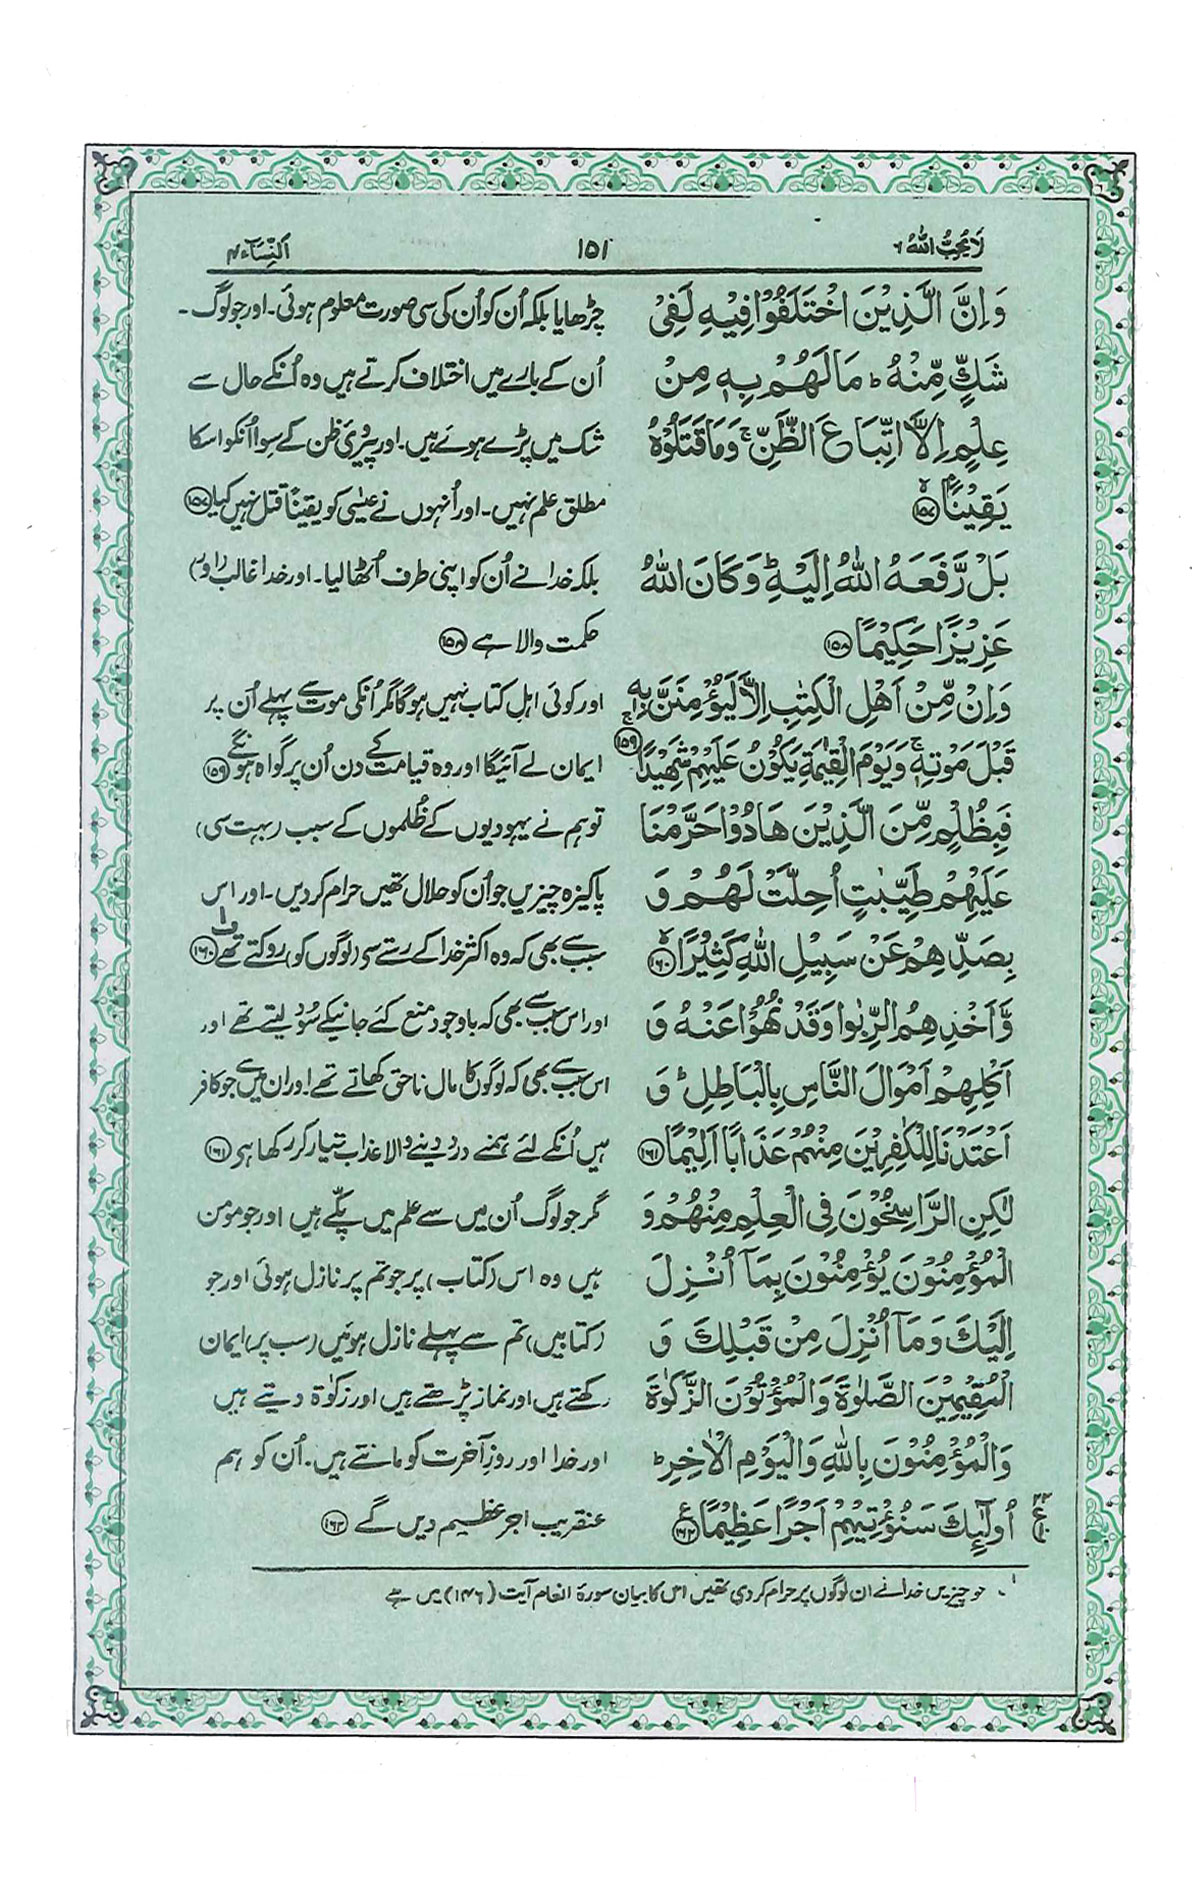 لَا يُحِبُّ اللّٰهُ ٦
١٥١
اَلنِّسَآء ٤
وَاِنَّ الَّذِيْنَ اخْتَلَفُوْا فِيْهِ لَفِيْ
شَكٍّ مِّنْهُ ؕ مَا لَهُمْ بِهٖ مِنْ
عِلْمٍ اِلَّا اتِّبَاعَ الظَّنِّ ۚ وَمَا قَتَلُوْهُ
يَقِيْنًا ۙ ﴿١٥٧﴾
بَلْ رَّفَعَهُ اللّٰهُ اِلَيْهِ ؕ وَكَانَ اللّٰهُ
عَزِيْزًا حَكِيْمًا ﴿١٥٨﴾
وَاِنْ مِّنْ اَهْلِ الْكِتٰبِ اِلَّا لَيُؤْمِنَنَّ بِهٖ
قَبْلَ مَوْتِهٖ ۚ وَيَوْمَ الْقِيٰمَةِ يَكُوْنُ عَلَيْهِمْ شَهِيْدًا ۚ ﴿١٥٩﴾
فَبِظُلْمٍ مِّنَ الَّذِيْنَ هَادُوْا حَرَّمْنَا
عَلَيْهِمْ طَيِّبٰتٍ اُحِلَّتْ لَهُمْ وَ
بِصَدِّهِمْ عَنْ سَبِيْلِ اللّٰهِ كَثِيْرًا ۙ ﴿١٦٠﴾
وَّاَخْذِهِمُ الرِّبٰوا وَقَدْ نُهُوْا عَنْهُ وَ
اَكْلِهِمْ اَمْوَالَ النَّاسِ بِالْبَاطِلِ ؕ وَ
اَعْتَدْنَا لِلْكٰفِرِيْنَ مِنْهُمْ عَذَابًا اَلِيْمًا ﴿١٦١﴾
لٰكِنِ الرَّاسِخُوْنَ فِي الْعِلْمِ مِنْهُمْ وَ
الْمُؤْمِنُوْنَ يُؤْمِنُوْنَ بِمَآ اُنْزِلَ
اِلَيْكَ وَمَآ اُنْزِلَ مِنْ قَبْلِكَ وَ
الْمُقِيْمِيْنَ الصَّلٰوةَ وَالْمُؤْتُوْنَ الزَّكٰوةَ
وَالْمُؤْمِنُوْنَ بِاللّٰهِ وَالْيَوْمِ الْاٰخِرِ ؕ
اُولٰٓئِكَ سَنُؤْتِيْهِمْ اَجْرًا عَظِيْمًا ﴿١٦٢﴾ ع
چڑھایا بلکہ اُن کو اُن کی سی صورت معلوم ہوئی۔ اور جو لوگ ۔
اُن کے بارے میں اختلاف کرتے ہیں وہ اُنکے حال سے
شک میں پڑے ہوئے ہیں۔ اور پیرویٔ ظن کے سوا اُنکو اسکا
مطلق علم نہیں۔ اور اُنہوں نے عیسٰی کو یقیناً قتل نہیں کیا ﴿۱۵۷﴾
بلکہ خدا نے اُن کو اپنی طرف اُٹھا لیا۔ اور خدا غالب (اور)
حکمت والا ہے ﴿۱۵۸﴾
اور کوئی اہل کتاب نہیں ہوگا مگر اُنکی موت سے پہلے اُن پر
ایمان لے آئیگا اور وہ قیامت کے دن اُن پر گواہ ہونگے ﴿۱۵۹﴾
تو ہم نے یہودیوں کے ظُلموں کے سبب (بہت سی)
پاکیزہ چیزیں جو اُن کو حلال تھیں حرام کردیں۔ اور اس
سبب سے بھی کہ وہ اکثر خدا کے رستے سے (لوگوں کو) روکتے تھے ف۱ ﴿۱۶۰﴾
اور اس سبب سے بھی کہ باوجود منع کئے جانیکے سُود لیتے تھے اور
اس سبب سے بھی کہ لوگوں کا مال ناحق کھاتے تھے۔ اور ان میں سے جو کافر
ہیں اُنکے لئے ہمنے درد دینے والا عذاب تیار کر رکھا ہے ﴿۱۶۱﴾
مگر جو لوگ اُن میں سے علم میں پکّے ہیں اور جو مومن
ہیں وہ اس (کتاب) پر جو تم پر نازل ہوئی اور جو
(کتابیں) تم سے پہلے نازل ہوئیں (سب پر) ایمان
رکھتے ہیں اور نماز پڑھتے ہیں اور زکوٰۃ دیتے ہیں
اور خدا اور روزِ آخرت کو مانتے ہیں۔ اُن کو ہم
عنقریب اجر عظیم دیں گے ﴿۱۶۲﴾
۱۔ جو چیزیں خدا نے ان لوگوں پر حرام کر دی تھیں اس کا بیان سورۃ انعام آیت (۱۴۶) میں ہے